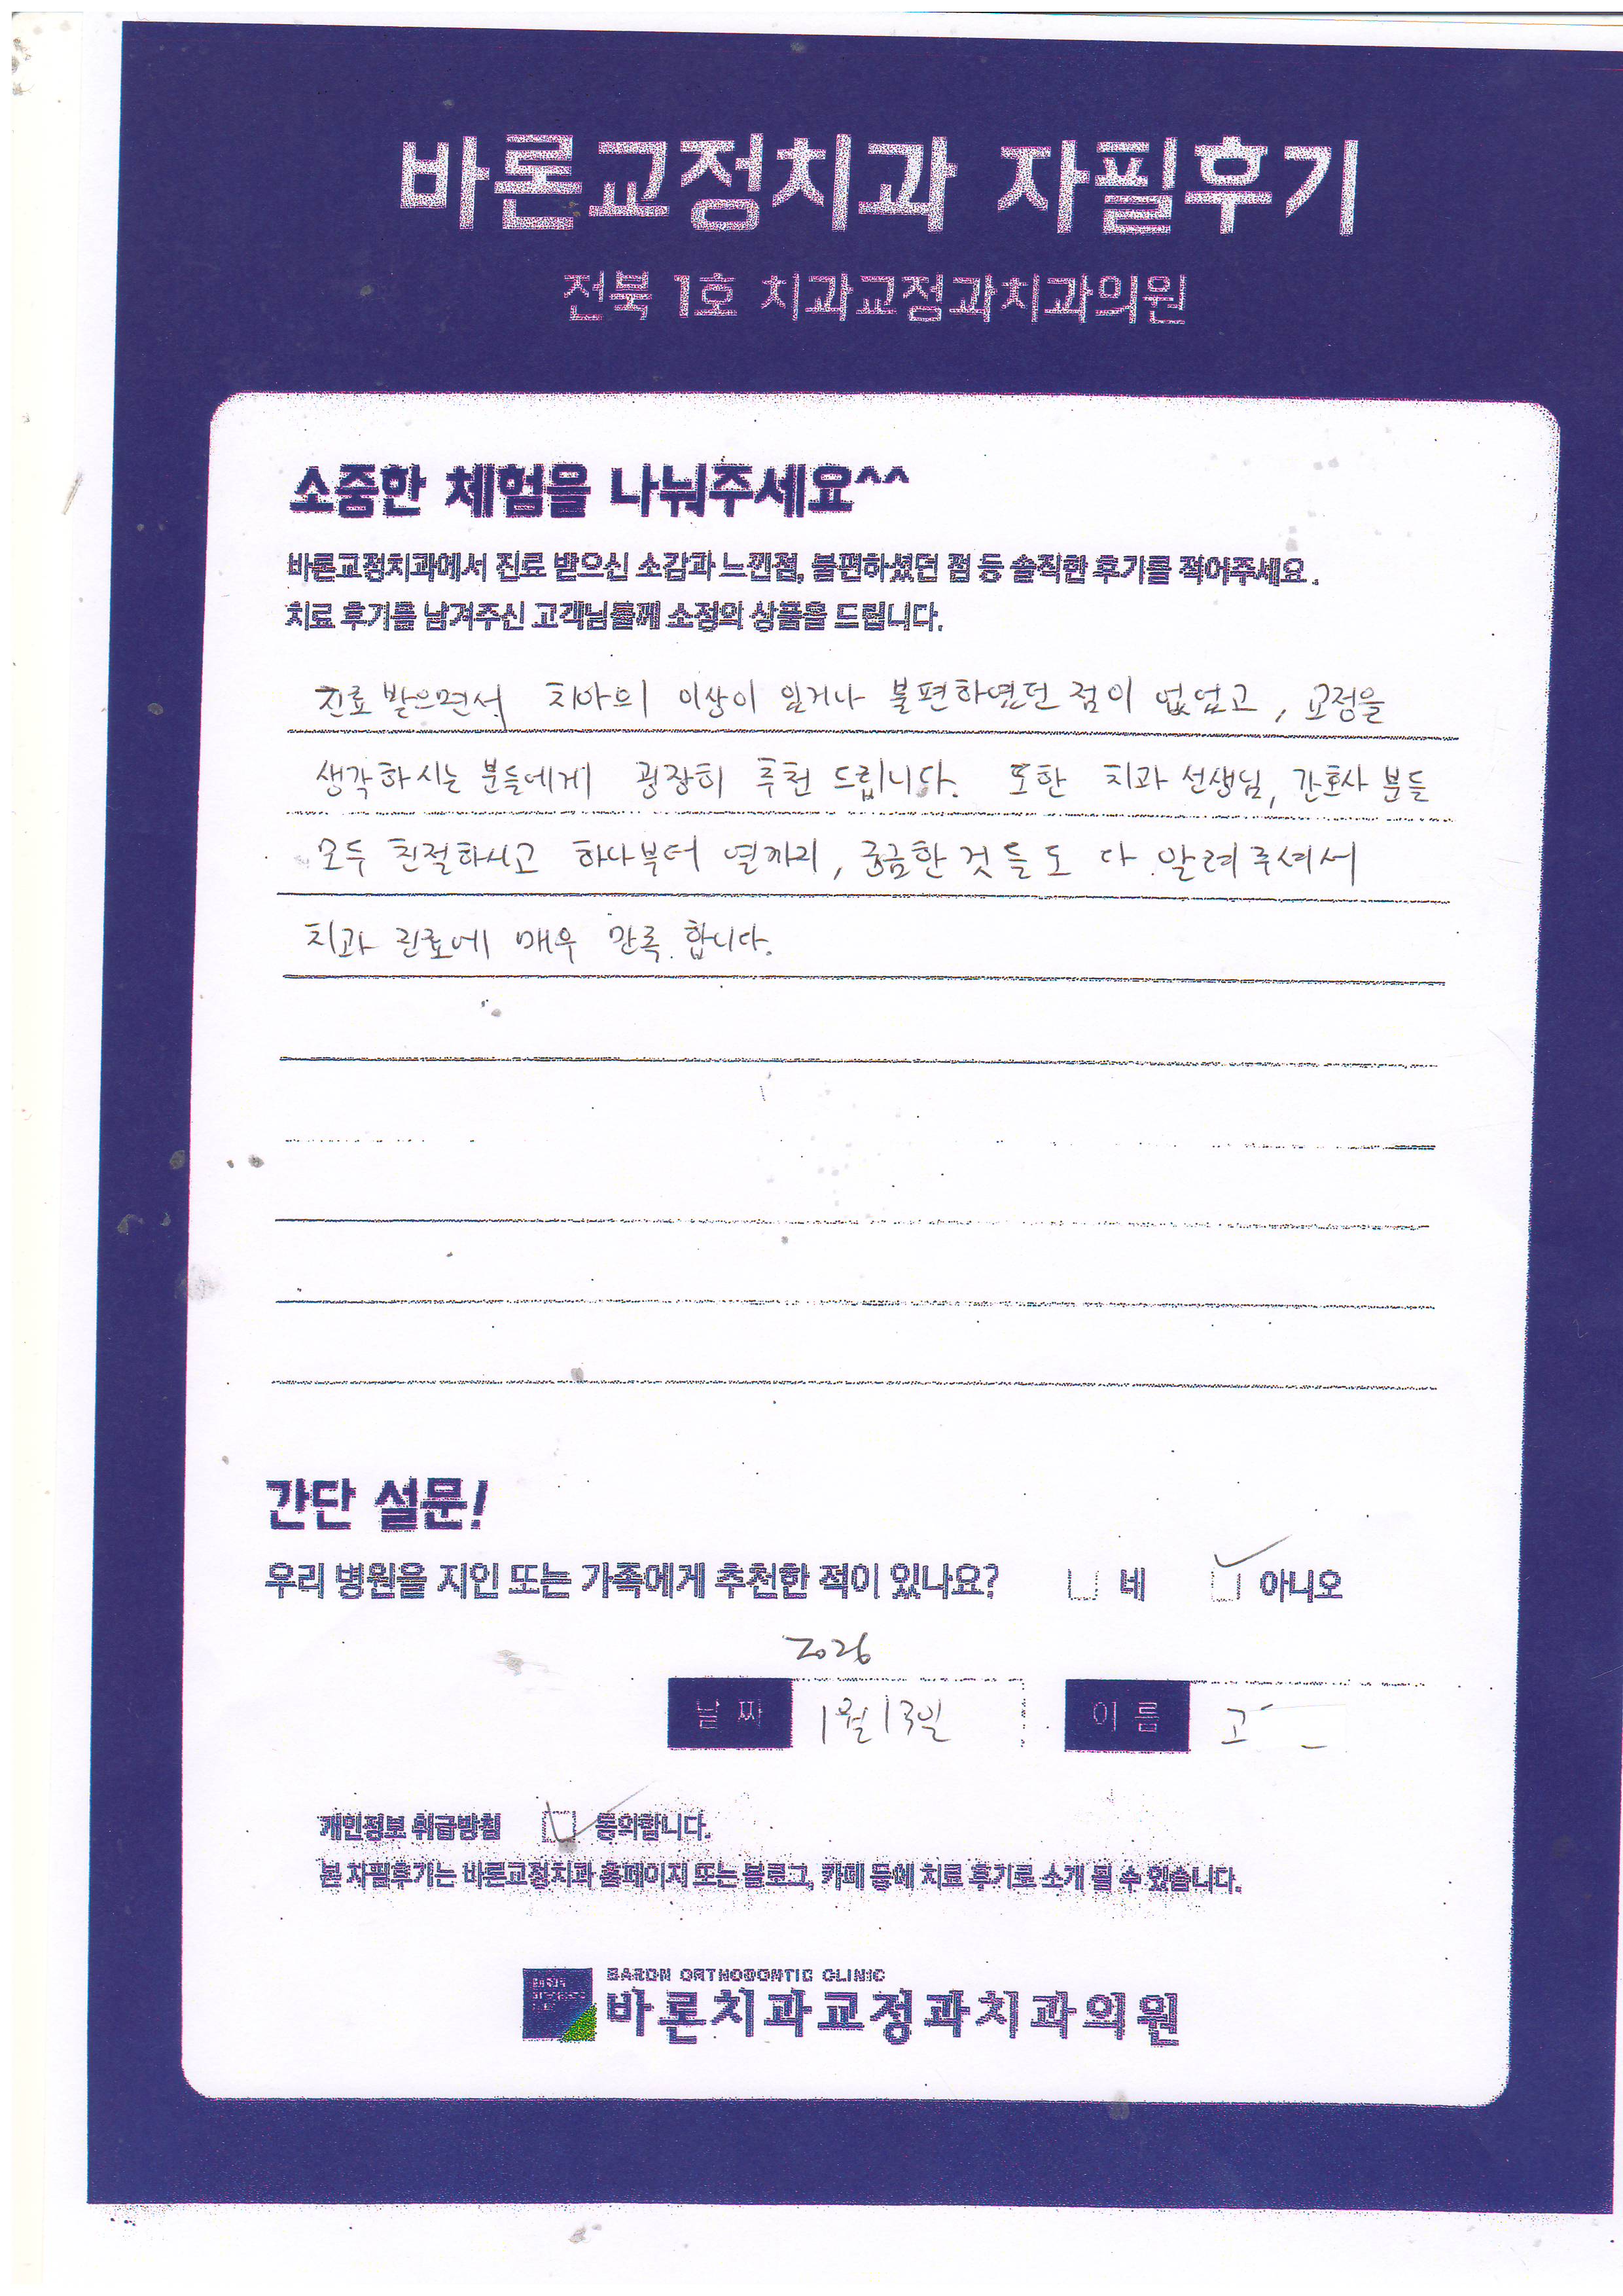 바론교정치과 자필후기
전북 1호 치과교정과치과의원
소중한 체험을 나눠주세요^^
바른교정치과에서 진료 받으신 소감과 느낀점, 불편하셨던 점 등 솔직한 후기를 적어주세요.
치료 후기를 남겨주신 고객님들께 소정의 상품을 드립니다.
진료 받으면서 치아의 이상이 있거나 불편하였던 점이 없었고, 교정을
생각하시는 분들에게 굉장히 추천 드립니다. 또한 치과 선생님, 간호사 분들
모두 친절하시고 하나부터 열까지, 궁금한 것들도 다 알려주셔서
치과 진료에 매우 만족 합니다.
간단 설문!
우리 병원을 지인 또는 가족에게 추천한 적이 있나요? 네 아니오
2026
날짜 1월 13일 이름 고
개인정보 취급방침 동의합니다.
본 자필후기는 바론교정치과 홈페이지 또는 블로그, 카페 등에 치료 후기로 소개 될 수 있습니다.
BARON ORTHODONTIC CLINIC
바론치과교정과치과의원